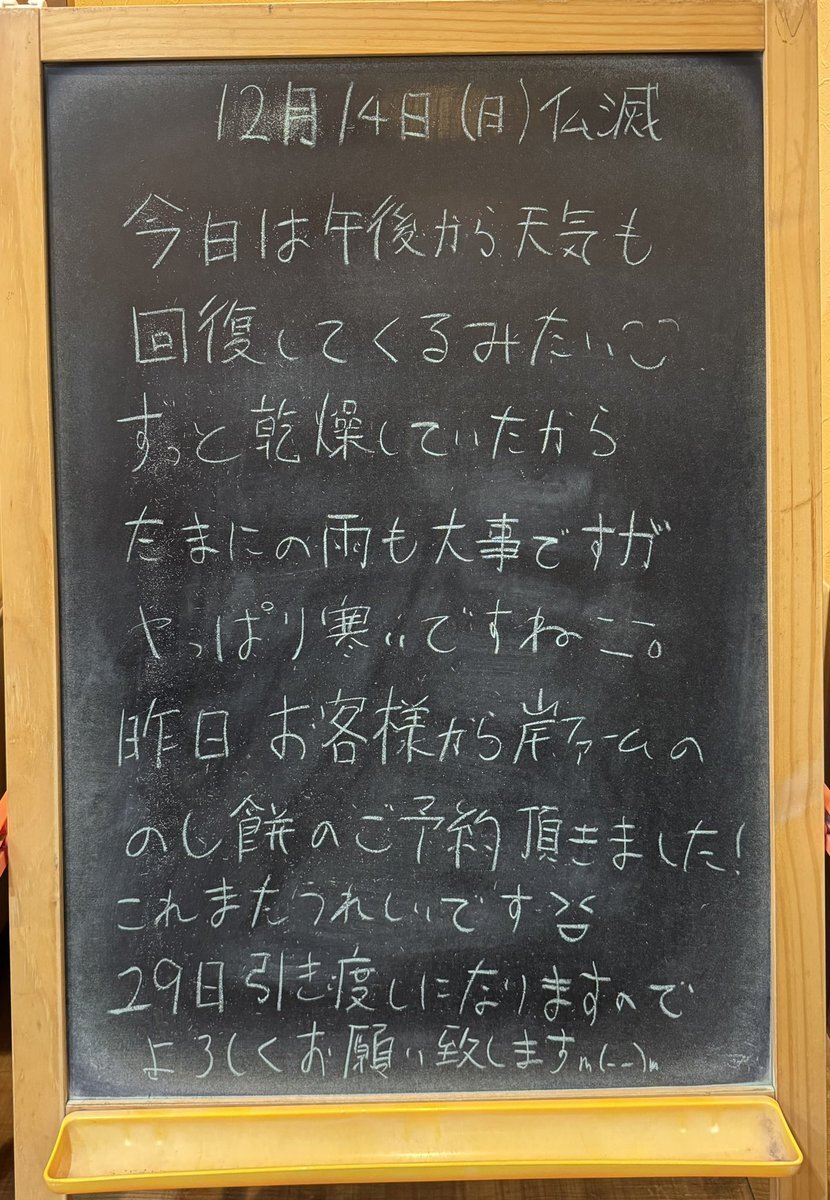 12月14日(日)仏滅
今日は午後から天気も
回復してくるみたい
ずっと乾燥していたから
たまにの雨も大事ですが
やっぱり寒いですね
昨日 お客様から岸ファームの
のし餅のご予約頂きました!
これまたうれしいです
29日引き度しになりますので
よろしくお願い致しますm(--)m